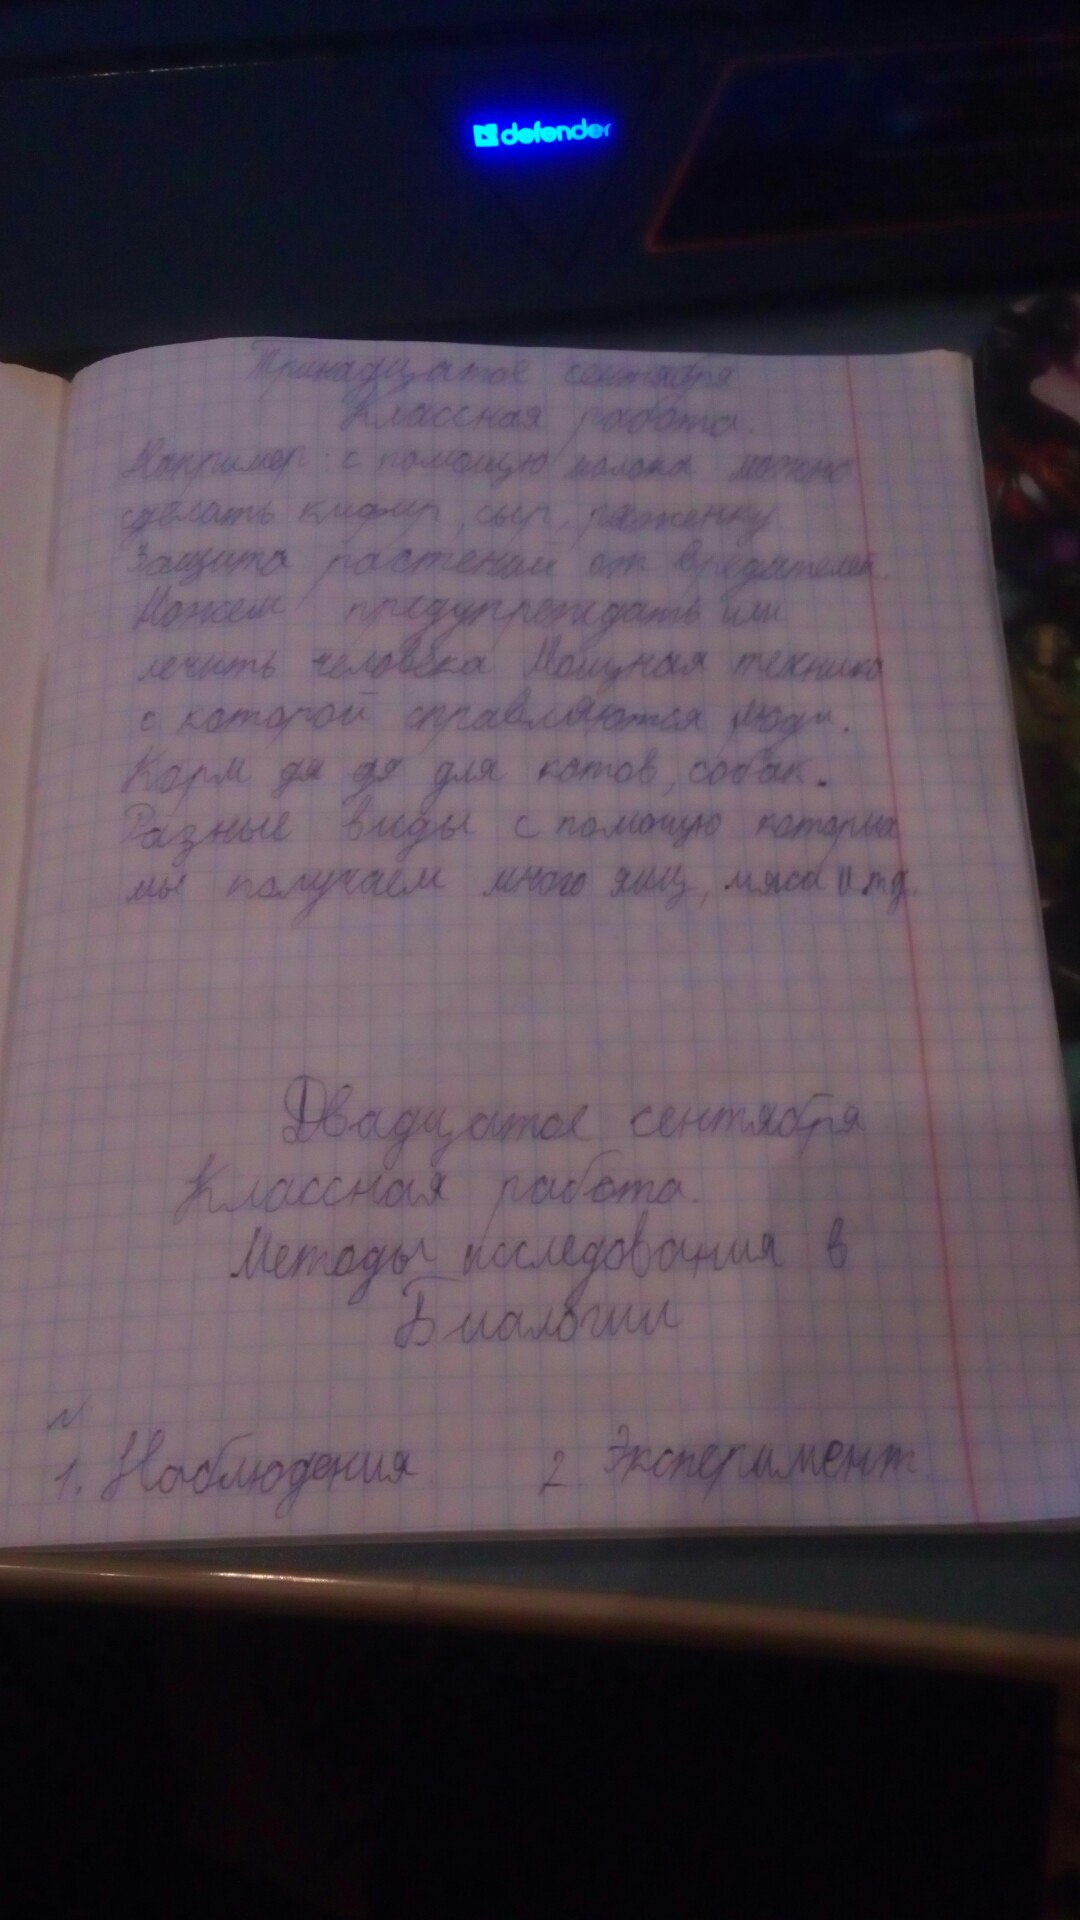 defender
Тринадцатое сентября
Классная работа.
Например: с помощью молока можно
сделать кифир, сыр, ряженку
Защита растений от вредителей.
Можем предупреждать или
лечить человека Мощная техника
с которой справляются люди.
Корм дя дя для котов, собак.
Разные виды с помощю которых
мы получаем много яиц, мяса и тд.
Двадцатое сентября
Классная работа.
Методы исследования в
Биалогии
1. Наблюдения 2. Эксперимент